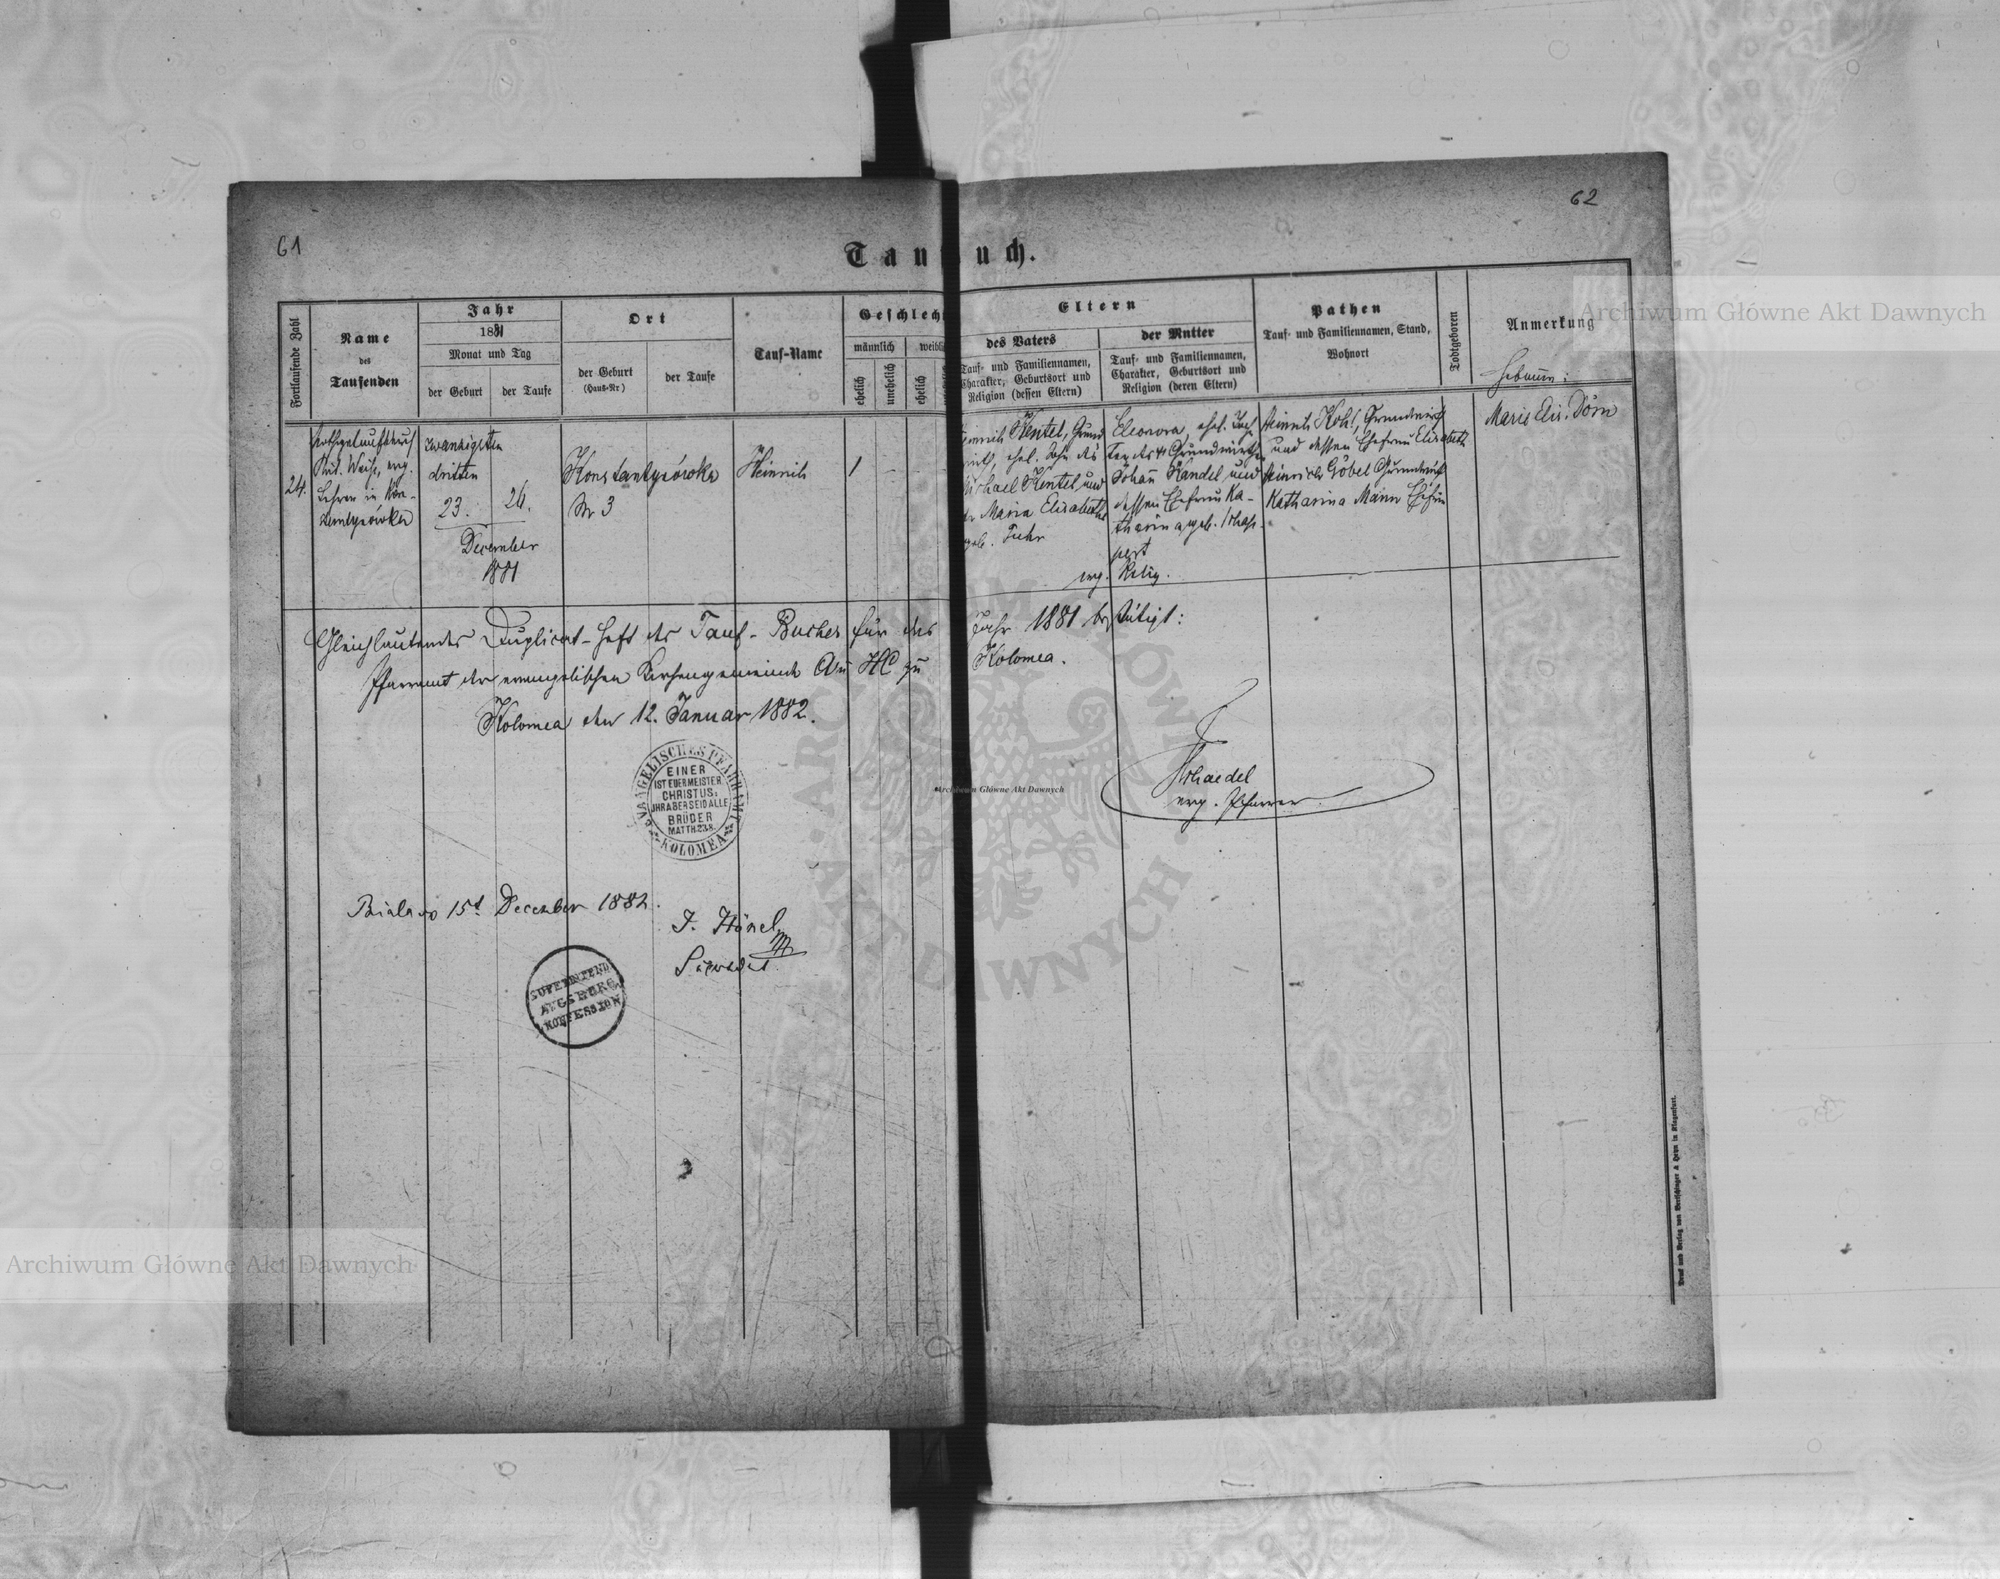 61
62
Taufbuch.
Fortlaufende Zahl
Name
des
Taufenden
Jahr
1881
Monat und Tag
der Geburt
der Taufe
Ort
der Geburt
(Haus-Nr)
der Taufe
Tauf-Name
Geschlech
männlich
weibli
ehelich
unehelich
ehelich
Eltern
des Vaters
Tauf- und Familiennamen,
Charakter, Geburtsort und
Religion (dessen Eltern)
der Mutter
Tauf- und Familiennamen,
Charakter, Geburtsort und
Religion (deren Eltern)
Pathen
Tauf- und Familiennamen, Stand,
Wohnort
Todtgeboren
Anmerkung
Hebamme:
24.
Nothgetauft durch
Weiß, evg.
Lehrer in Kon-
stantysówka
zwanzigsten
dritten
23. 26.
December
1881
Konstantysówka
Nr 3
Heinrich
1
Heinrich Hentel, Grund
wirth, ehel. Sohn des
Michael Hentel und
der Maria Elisabetha
geb. Fuhr
Eleonora, ehel. Toch
ter des Grundwirths
Johann Handel und
dessen Ehefrau Ka-
tharina geb. Schap-
pert
evg. Relig.
Heinrich Kohl, Grundwirth
und dessen Ehefrau Elisabeth
Heinrich Göbel Grundwirth
Katharina Mann Ehefrau
Marie Elis. Dörn
Gleichlautendes Duplicat-Heft des Tauf-Buches für das Jahr 1881 bestätigt:
Pfarramt der evangelischen Kirchengemeinde A u HC zu Kolomea.
Kolomea den 12. Januar 1882.
evg. Pfarrer
EVANGELISCHES PFARRAMT
KOLOMEA
EINER
IST EUER MEISTER
CHRISTUS:
IHR ABER SEID ALLE
BRÜDER
MATTH.23.8.
Biala 15t December 1882.
J. Hönel
SUPERINTEND
AUGSBURG
KONFESSION
Druck und Verlag von Bertschinger & Heyn in Klagenfurt.
Archiwum Główne Akt Dawnych
Archiwum Główne Akt Dawnych
Archiwum Główne Akt Dawnych
ARCHIWUM GŁÓWNE AKT DAWNYCH